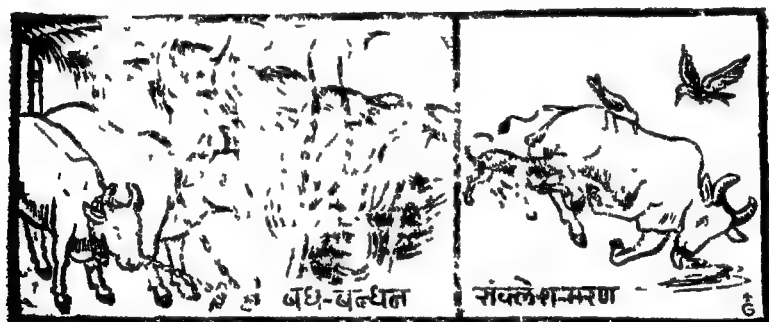 बध-बन्धन
संक्लेश-मरण